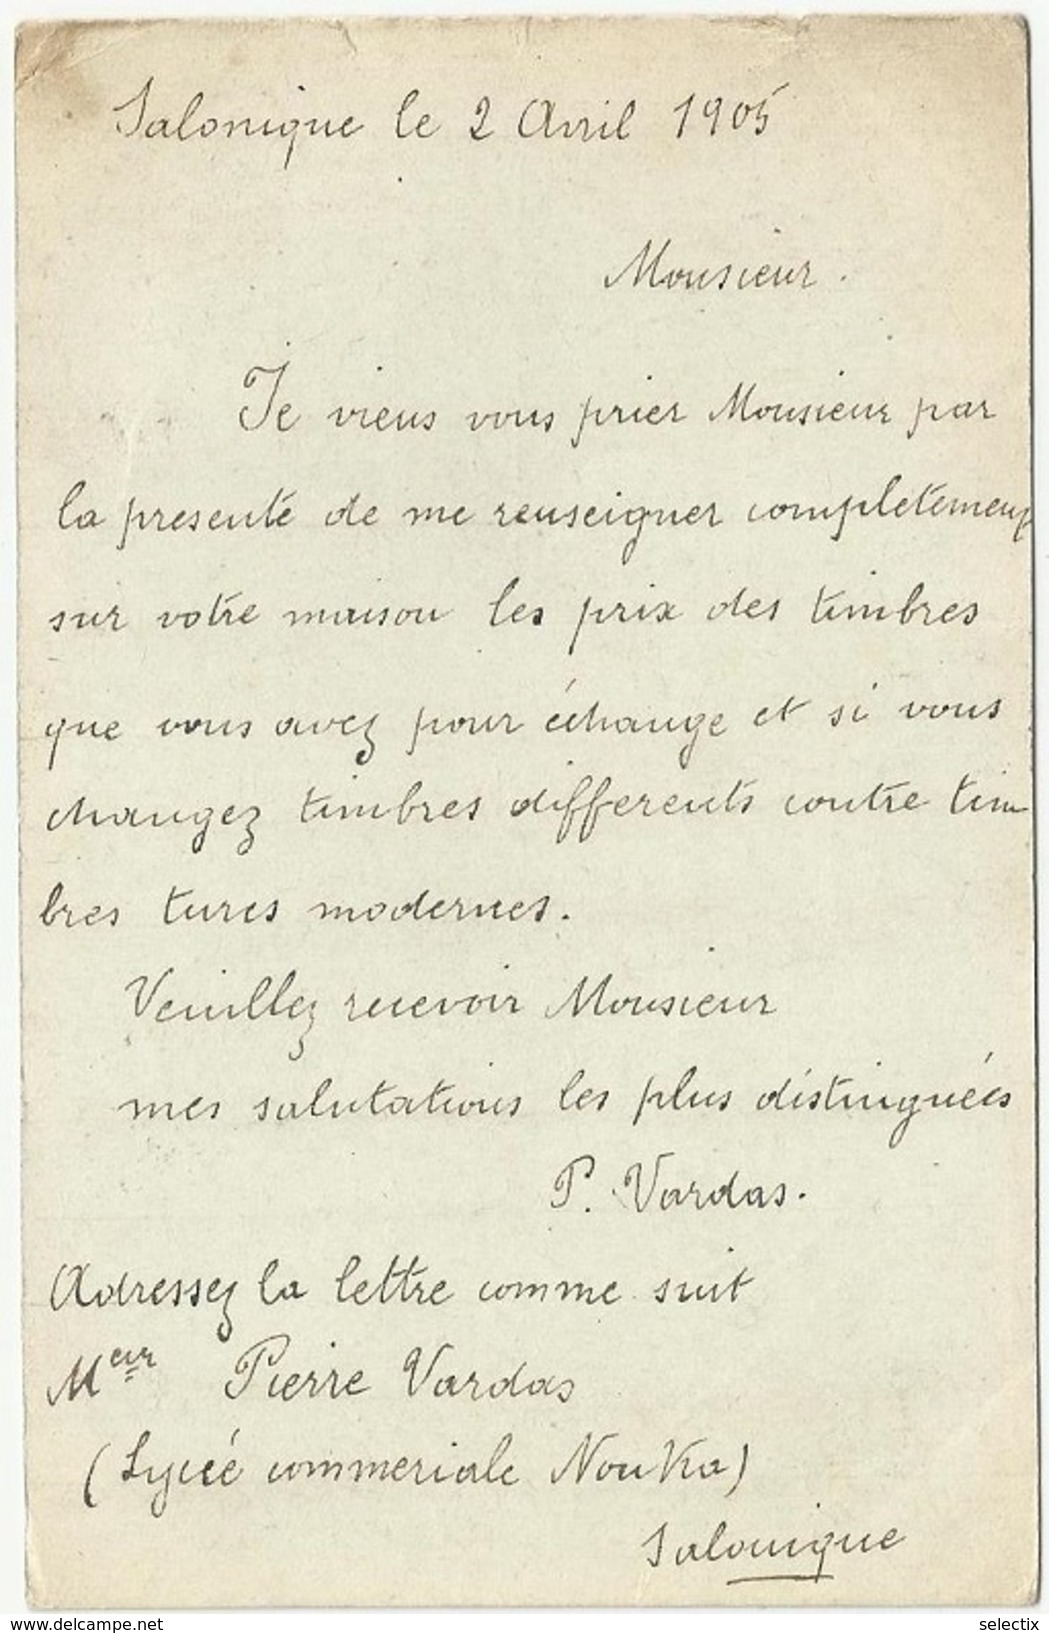 Salonique le 2 Avril 1905
Monsieur.
Je viens vous prier Monsieur par
la presente de me renseigner completement
sur votre maison les prix des timbres
que vous avez pour échange et si vous
changez timbres differents contre tim
bres turcs modernes.
Veuillez recevoir Monsieur
mes salutations les plus distinguées
P. Vardas.
Adressez la lettre comme suit
Meur Pierre Vardas
(Lycéé commeriale Nouka)
Salonique
www.delcampe.net selectix